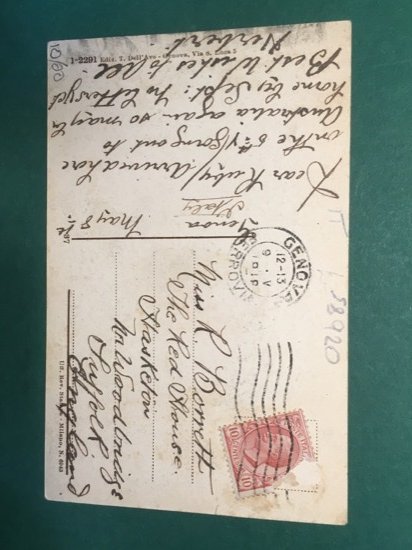 1-2291 Edit. T. Dell'Avo - Genova, Via S. Luca 5
Genoa
Italy
May 8th
Dear Ruby/Arrived here
on the 6th/Going out to
Australia again so may be
home by Sept: No letters yet
Best Wishes to All.
Herbert
10/60
GENOVA
FERROVIA
12-13
9. V
Miss R Borrett
The Red House.
Hasketon
Nr Woodbridge
Suffolk
England
58920
10
10
Uff. Rev. Stampa, Milano, N.